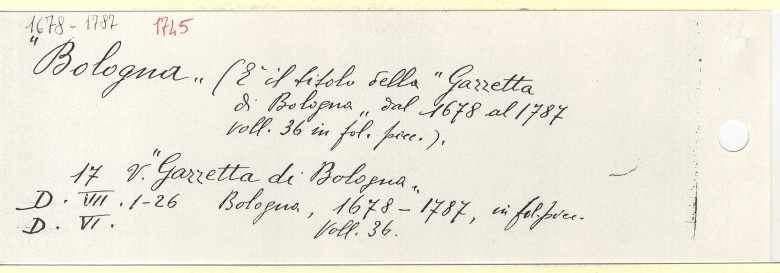 1678-1787 1745
"Bologna„ (È il titolo della "Gazzetta
di Bologna„ dal 1678 al 1787
voll. 36 in fol. picc.).
17 V. "Gazzetta di Bologna„
D. VIII. 1-26 Bologna, 1678-1787, in fol. picc.
D. VI. Voll. 36.